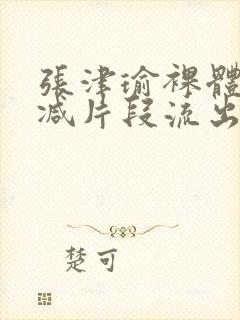 張津瑜裸體
减片段流出
楚可